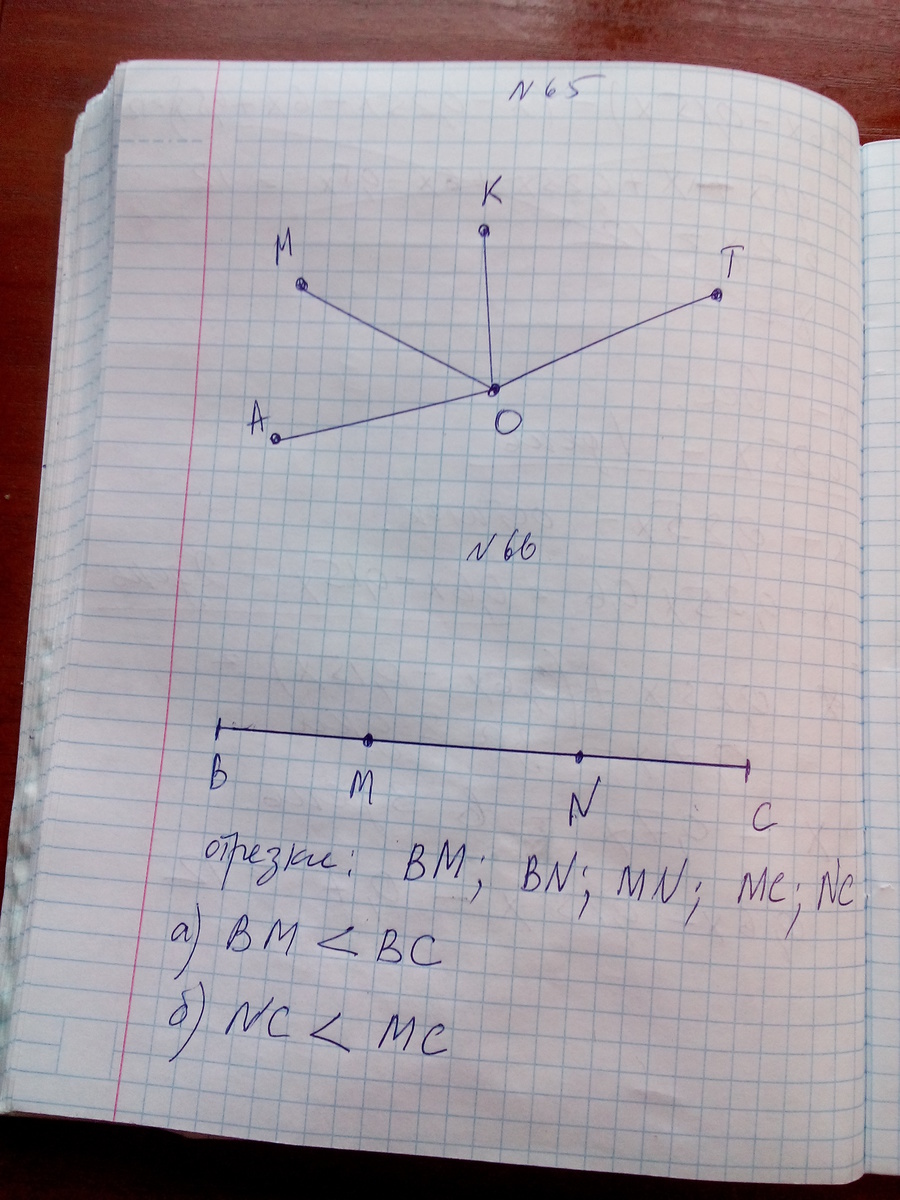 N 65
K
M
T
A
O
N 66
B M N C
отрезки: BM; BN; MN; MC; NC
а) BM < BC
б) NC < MC